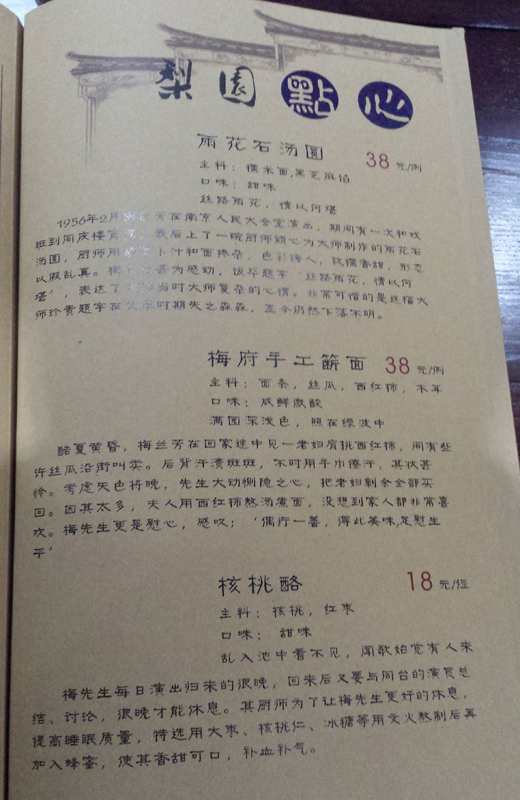 梨園 點心
雨花石汤圆 38元/例
主料：糯米面,黑芝麻馅
口味：甜味
丝路雨花，情以何堪
1956年2月 芳在南京人民大会堂演出，期间有一次和戏
班到同庆楼 最后上了一碗厨师精心为大师制作的雨花石
汤圆，厨师用 卜汁和面掺杂，色彩诱人，软糯香甜，形态
以假乱真。梅 甚为感动，饭毕题字'丝路雨花，情以何
堪'，表达了 当时大师复杂的心情。非常可惜的是这幅大
师珍贵题字在 时期失之淼淼，至今仍然下落不明。
梅府手工箭面 38元/例
主料：面条，丝瓜，西红柿，木耳
口味：咸鲜微酸
满园深浅色，照在绿波中
酷夏黄昏，梅兰芳在回家途中见一老妇肩挑西红柿，间有些
许丝瓜沿街叫卖。后背汗渍斑斑，不时用手巾擦汗，其状甚
怜。考虑天色将晚，先生大动恻隐之心，把老妇剩余全部买
回。因其太多，夫人用西红柿熬汤煮面，没想到家人都非常喜
欢。梅先生更是慰心，感叹；'偶行一善，得此美味,足慰生
平'
核桃酪 18元/位
主料：核桃，红枣
口味：甜味
乱入池中看不见，闻歌始觉有人来
梅先生每日演出归来的很晚，回来后又要与同台的演员总
结、讨论，很晚才能休息。其厨师为了让梅先生更好的休息，
提高睡眠质量，特选用大枣、核桃仁、冰糖等用文火熬制后再
加入蜂蜜，使其香甜可口，补血补气。